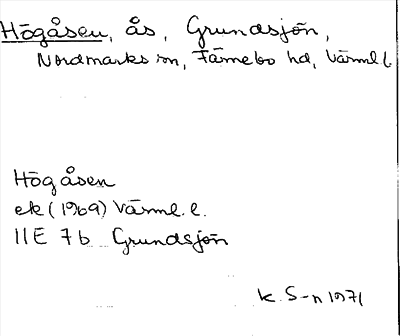 Högåsen, ås, Grundsjön,
Nordmarks sn, Färnebo hd, Värml l.
Högåsen
ek (1969) Värml. l.
11E 7b Grundsjön
K. S-n 1971